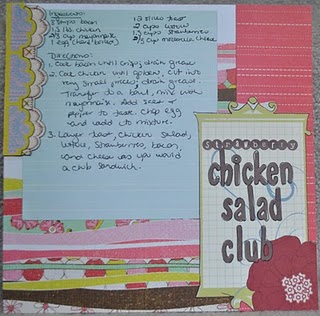 Ingredients:
bacon
1/2 lb. chicken
mayonnaise
1 egg (hard boiled)
toast
2 cups
1.5 cups strawberries
cup mozzarella cheese
Directions:
1. Cook bacon until crisp; drain grease
2. Cook chicken until golden, cut into
very small pieces; drain grease.
Transfer to a bowl, mix with
mayonnaise. Add salt &
pepper to taste. Chop egg
and add to mixture.
3. Layer toast, chicken salad,
strawberries, bacon,
and cheese as you would
a club sandwich.
strawberry
chicken
salad
club